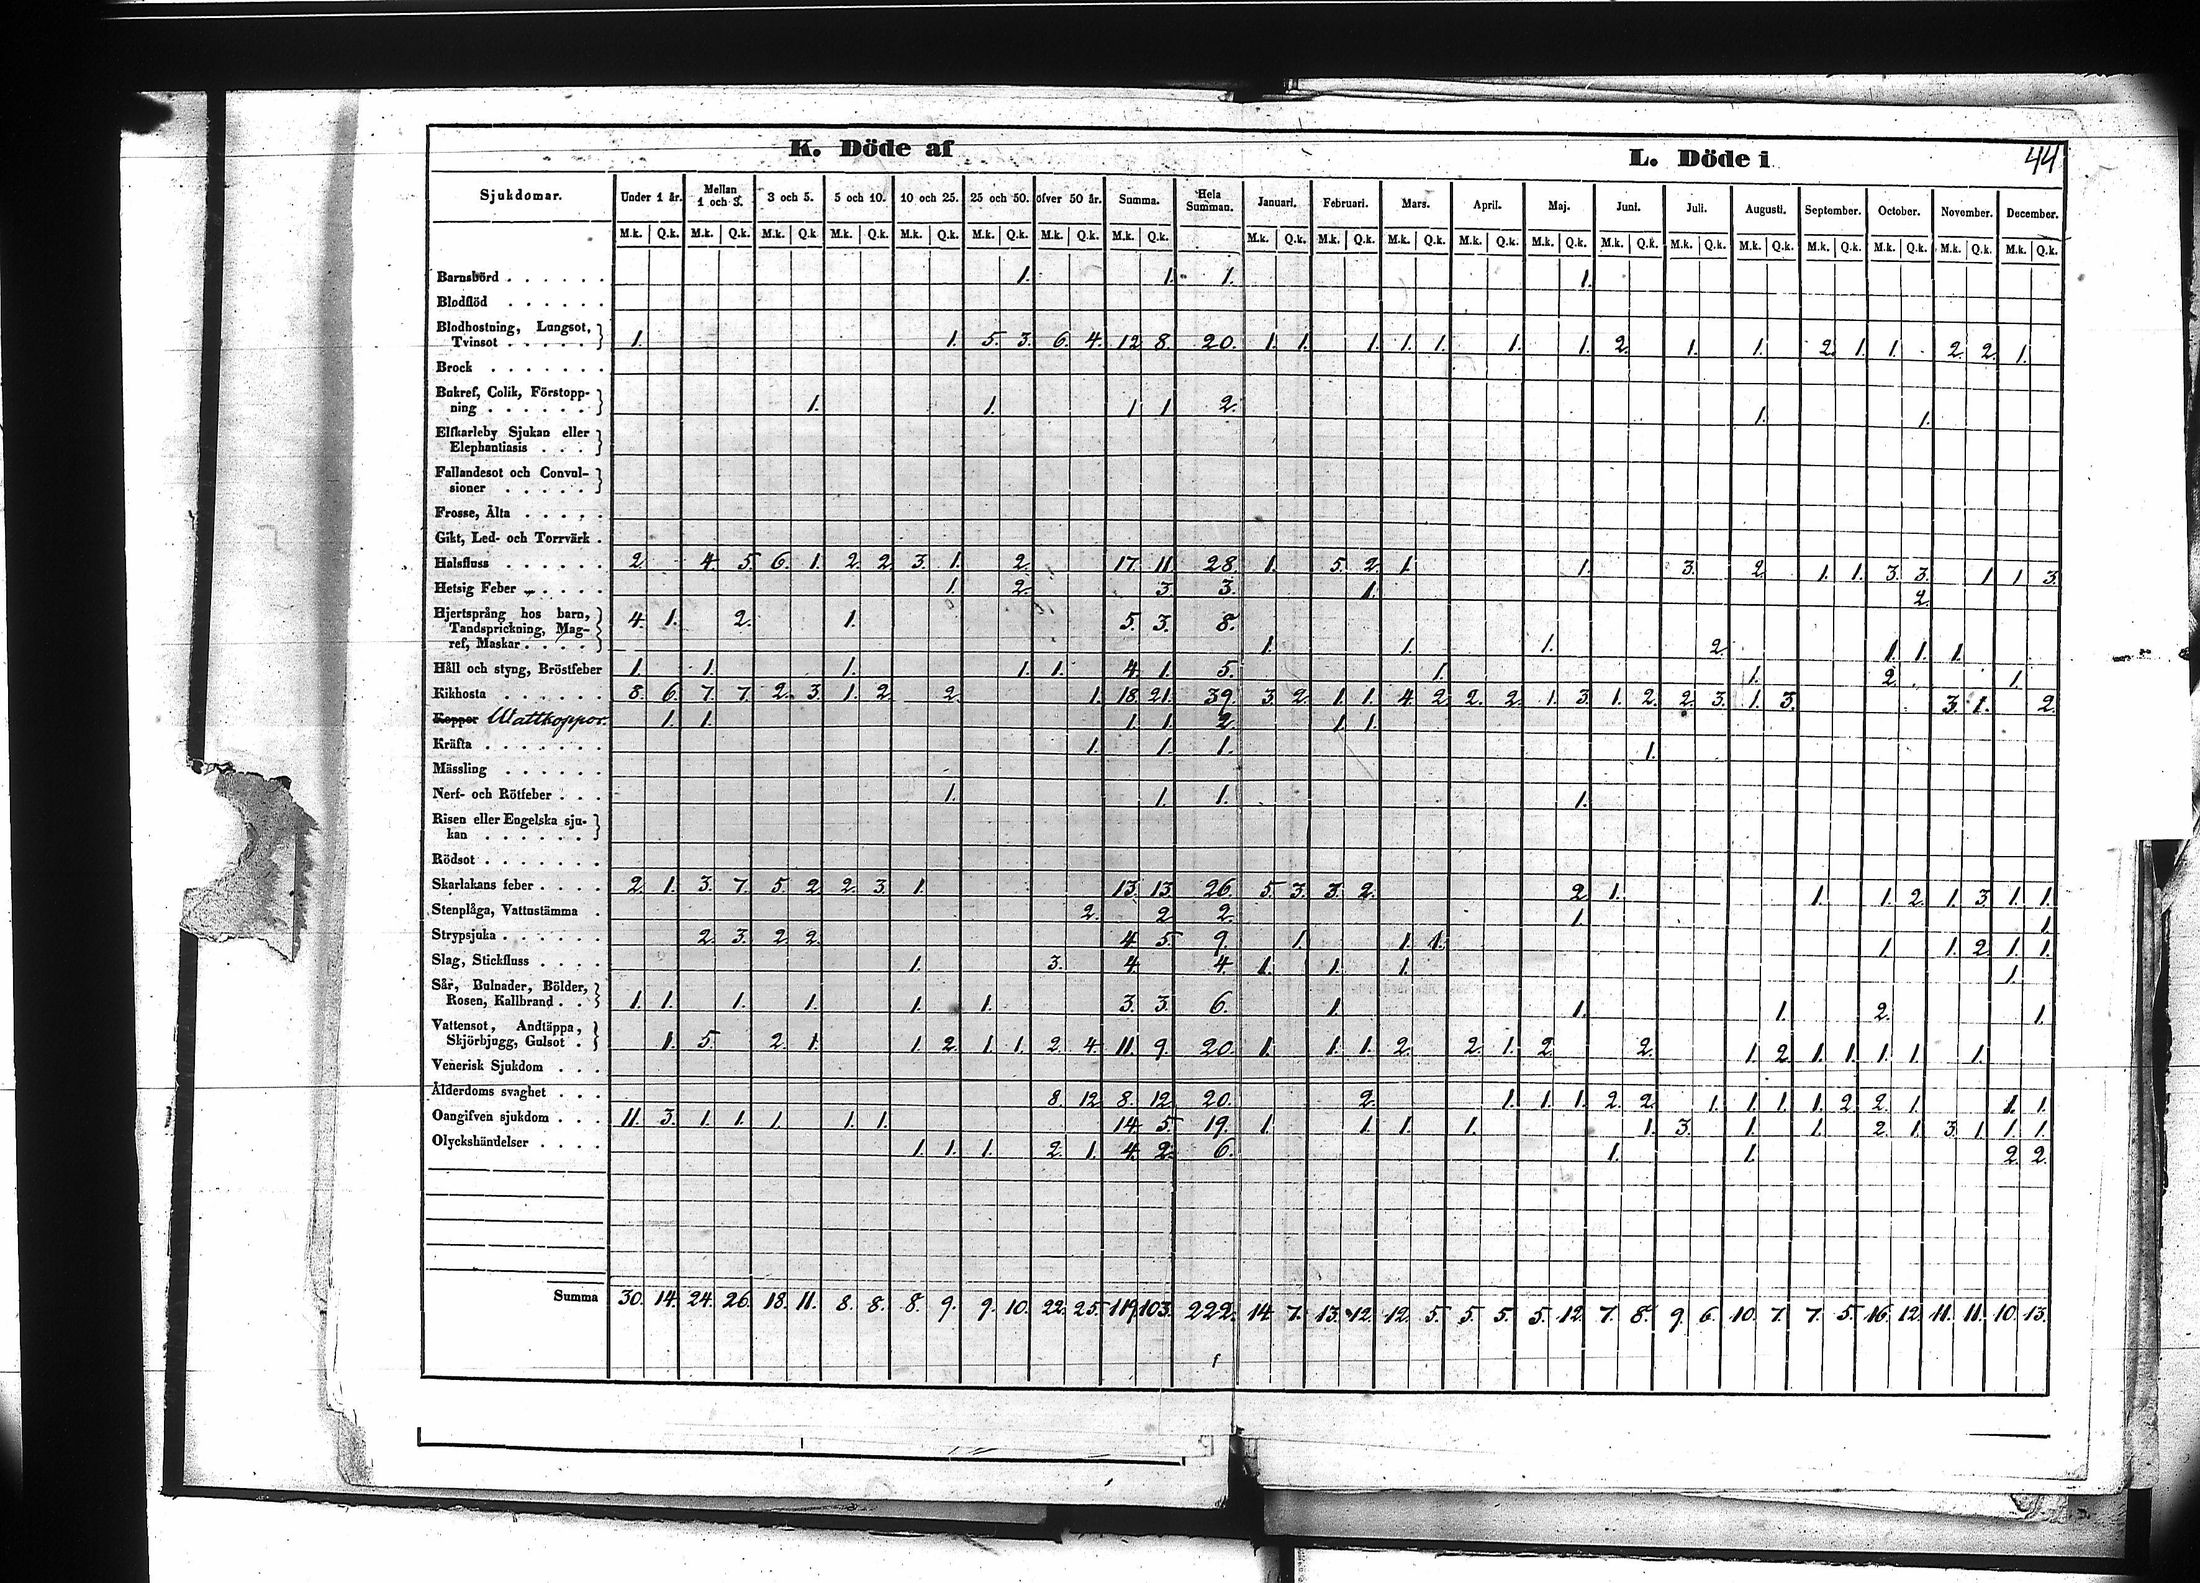 K. Döde af L. Döde i 44
Sjukdomar. Under 1 år. Mellan 1 och 3. 3 och 5. 5 och 10. 10 och 25. 25 och 50. öfver 50 år. Summa. Hela Summan. Januari. Februari. Mars. April. Maj. Juni. Juli. Augusti. September. October. November. December.
M.k. Q.k. M.k. Q.k. M.k. Q.k M.k. Q.k. M.k. Q.k. M.k. Q.k. M.k. Q.k. M.k. Q.k. M.k. Q.k. M.k. Q.k. M.k. Q.k. M.k. Q.k. M.k. Q.k. M.k. Q.k. M.k. Q.k. M.k. Q.k. M.k. Q.k. M.k. Q.k. M.k. Q.k. M.k. Q.k.
Barnsbörd 1. 1. 1. 1.
Blodflöd
Blodhostning, Lungsot,
Tvinsot 1. 1. 5. 3. 6. 4. 12 8. 20. 1. 1. 1. 1. 1. 1. 1. 2. 1. 1. 2. 1. 1. 2. 2. 1.
Brock
Bukref, Colik, Förstopp-
ning 1. 1. 1 1 2. 1. 1.
Elfkarleby Sjukan eller
Elephantiasis
Fallandesot och Convul-
sioner
Frosse, Älta
Gikt, Led- och Torrvärk
Halsfluss 2. 4. 5. 6. 1. 2. 2. 3. 1. 2. 17. 11. 28. 1. 5. 2. 1. 1. 3. 2. 1. 1. 3. 3. 1 1 3.
Hetsig Feber 1. 2. 3. 3. 1. 2.
Hjertsprång hos barn,
Tandsprickning, Mag-
ref, Maskar 4. 1. 2. 1. 5. 3. 8. 1. 1. 1. 2. 1. 1. 1.
Håll och styng, Bröstfeber 1. 1. 1. 1. 1. 4. 1. 5. 1. 1. 2. 1.
Kikhosta 8. 6. 7. 7. 2. 3. 1. 2. 2. 1. 18. 21. 39. 3. 2. 1. 1. 4. 2. 2. 2. 1. 3. 1. 2. 2. 3. 1. 3. 3. 1. 2.
Koppor Wattkoppor. 1. 1. 1. 1. 2. 1. 1.
Kräfta 1. 1. 1. 1.
Mässling
Nerf- och Rötfeber 1. 1. 1. 1.
Risen eller Engelska sju-
kan
Rödsot
Skarlakans feber 2. 1. 3. 7. 5. 2 2. 3. 1. 13. 13. 26. 5. 3. 3. 2. 2. 1. 1. 1. 2. 1. 3. 1. 1.
Stenplåga, Vattustämma 2. 2. 2. 1. 1.
Strypsjuka 2. 3. 2. 2. 4. 5. 9. 1. 1. 1. 1. 1. 2. 1. 1.
Slag, Stickfluss 1. 3. 4. 4 1. 1. 1. 1.
Sår, Bulnader, Bölder,
Rosen, Kallbrand 1. 1. 1. 1. 1. 1. 3. 3. 6. 1. 1. 1. 2. 1.
Vattensot, Andtäppa,
Skjörbjugg, Gulsot 1. 5. 2. 1. 1. 2. 1. 1. 2. 4. 11. 9. 20. 1. 1. 1. 2. 2. 1. 2. 2. 1. 2. 1. 1. 1. 1. 1.
Venerisk Sjukdom
Ålderdoms svaghet 8. 12. 8. 12. 20. 2. 1. 1. 1. 2. 2. 1. 1. 1. 1. 2. 2. 1. 1. 1.
Oangifven sjukdom 11. 3. 1. 1. 1. 1. 1. 14. 5. 19. 1. 1. 1. 1. 1. 3. 1. 1. 2. 1. 3. 1. 1. 1.
Olyckshändelser 1. 1. 1. 2. 1. 4. 2. 6. 1. 1. 2. 2.
Summa 30. 14. 24. 26. 18. 11. 8. 8. 8. 9. 9. 10. 22. 25. 119. 103. 222. 14. 7. 13. 12. 12. 5. 5. 5. 5. 12. 7. 8. 9. 6. 10. 7. 7. 5. 16. 12. 11. 11. 10. 13.